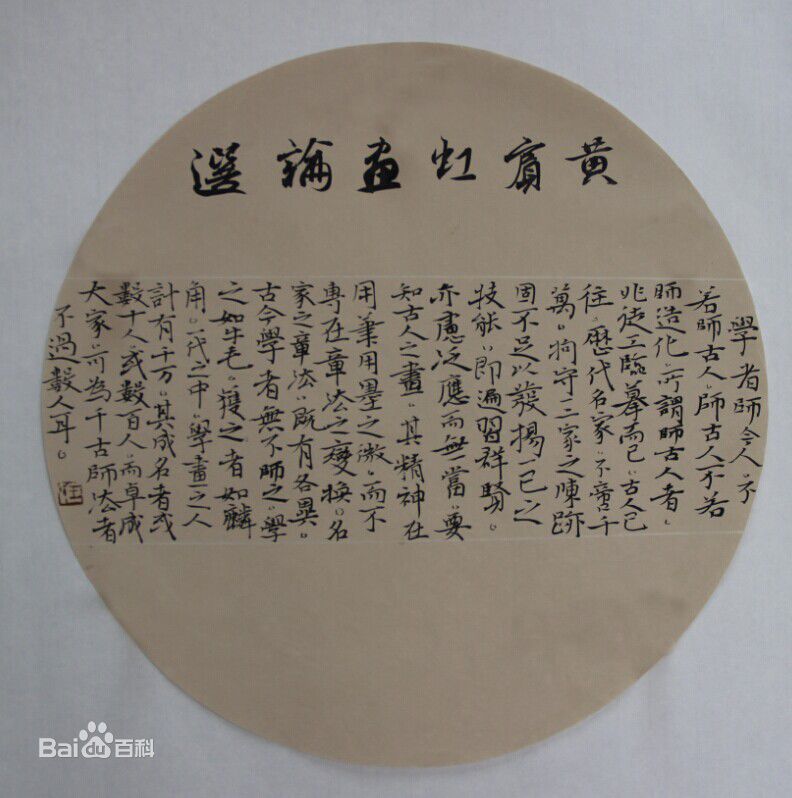 黃賓虹畫論選
學者師今人，不
若師古人，師古人不若
師造化。所謂師古人者，
非徒工臨摹而已，古人已
往，歷代名家，不啻千
萬。拘守一二家之陳跡
固不足以發揚一己之
技能，即遍習群賢。
亦慮泛應而無當，要
知古人之畫，其精神在
用筆用墨之微，而不
專在章法之變換。名
家之章法，既有各異。
古今學者無不師之，學
之如牛毛，獲之者如麟
角。一代之中，學畫之人
計有千万。其成名者或
數十人，或數百人，而卓成
大家，可為千古師法者
不過數人耳。
Baidu百科